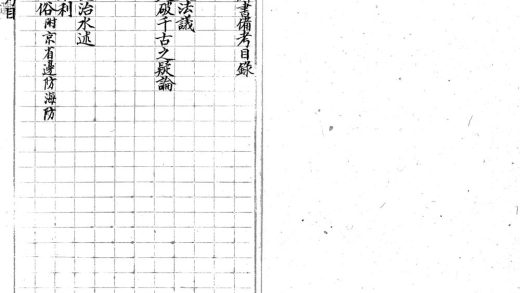 書備考目錄
法議
破千古之疑論
治水述
利
俗附京省邊防海防
目